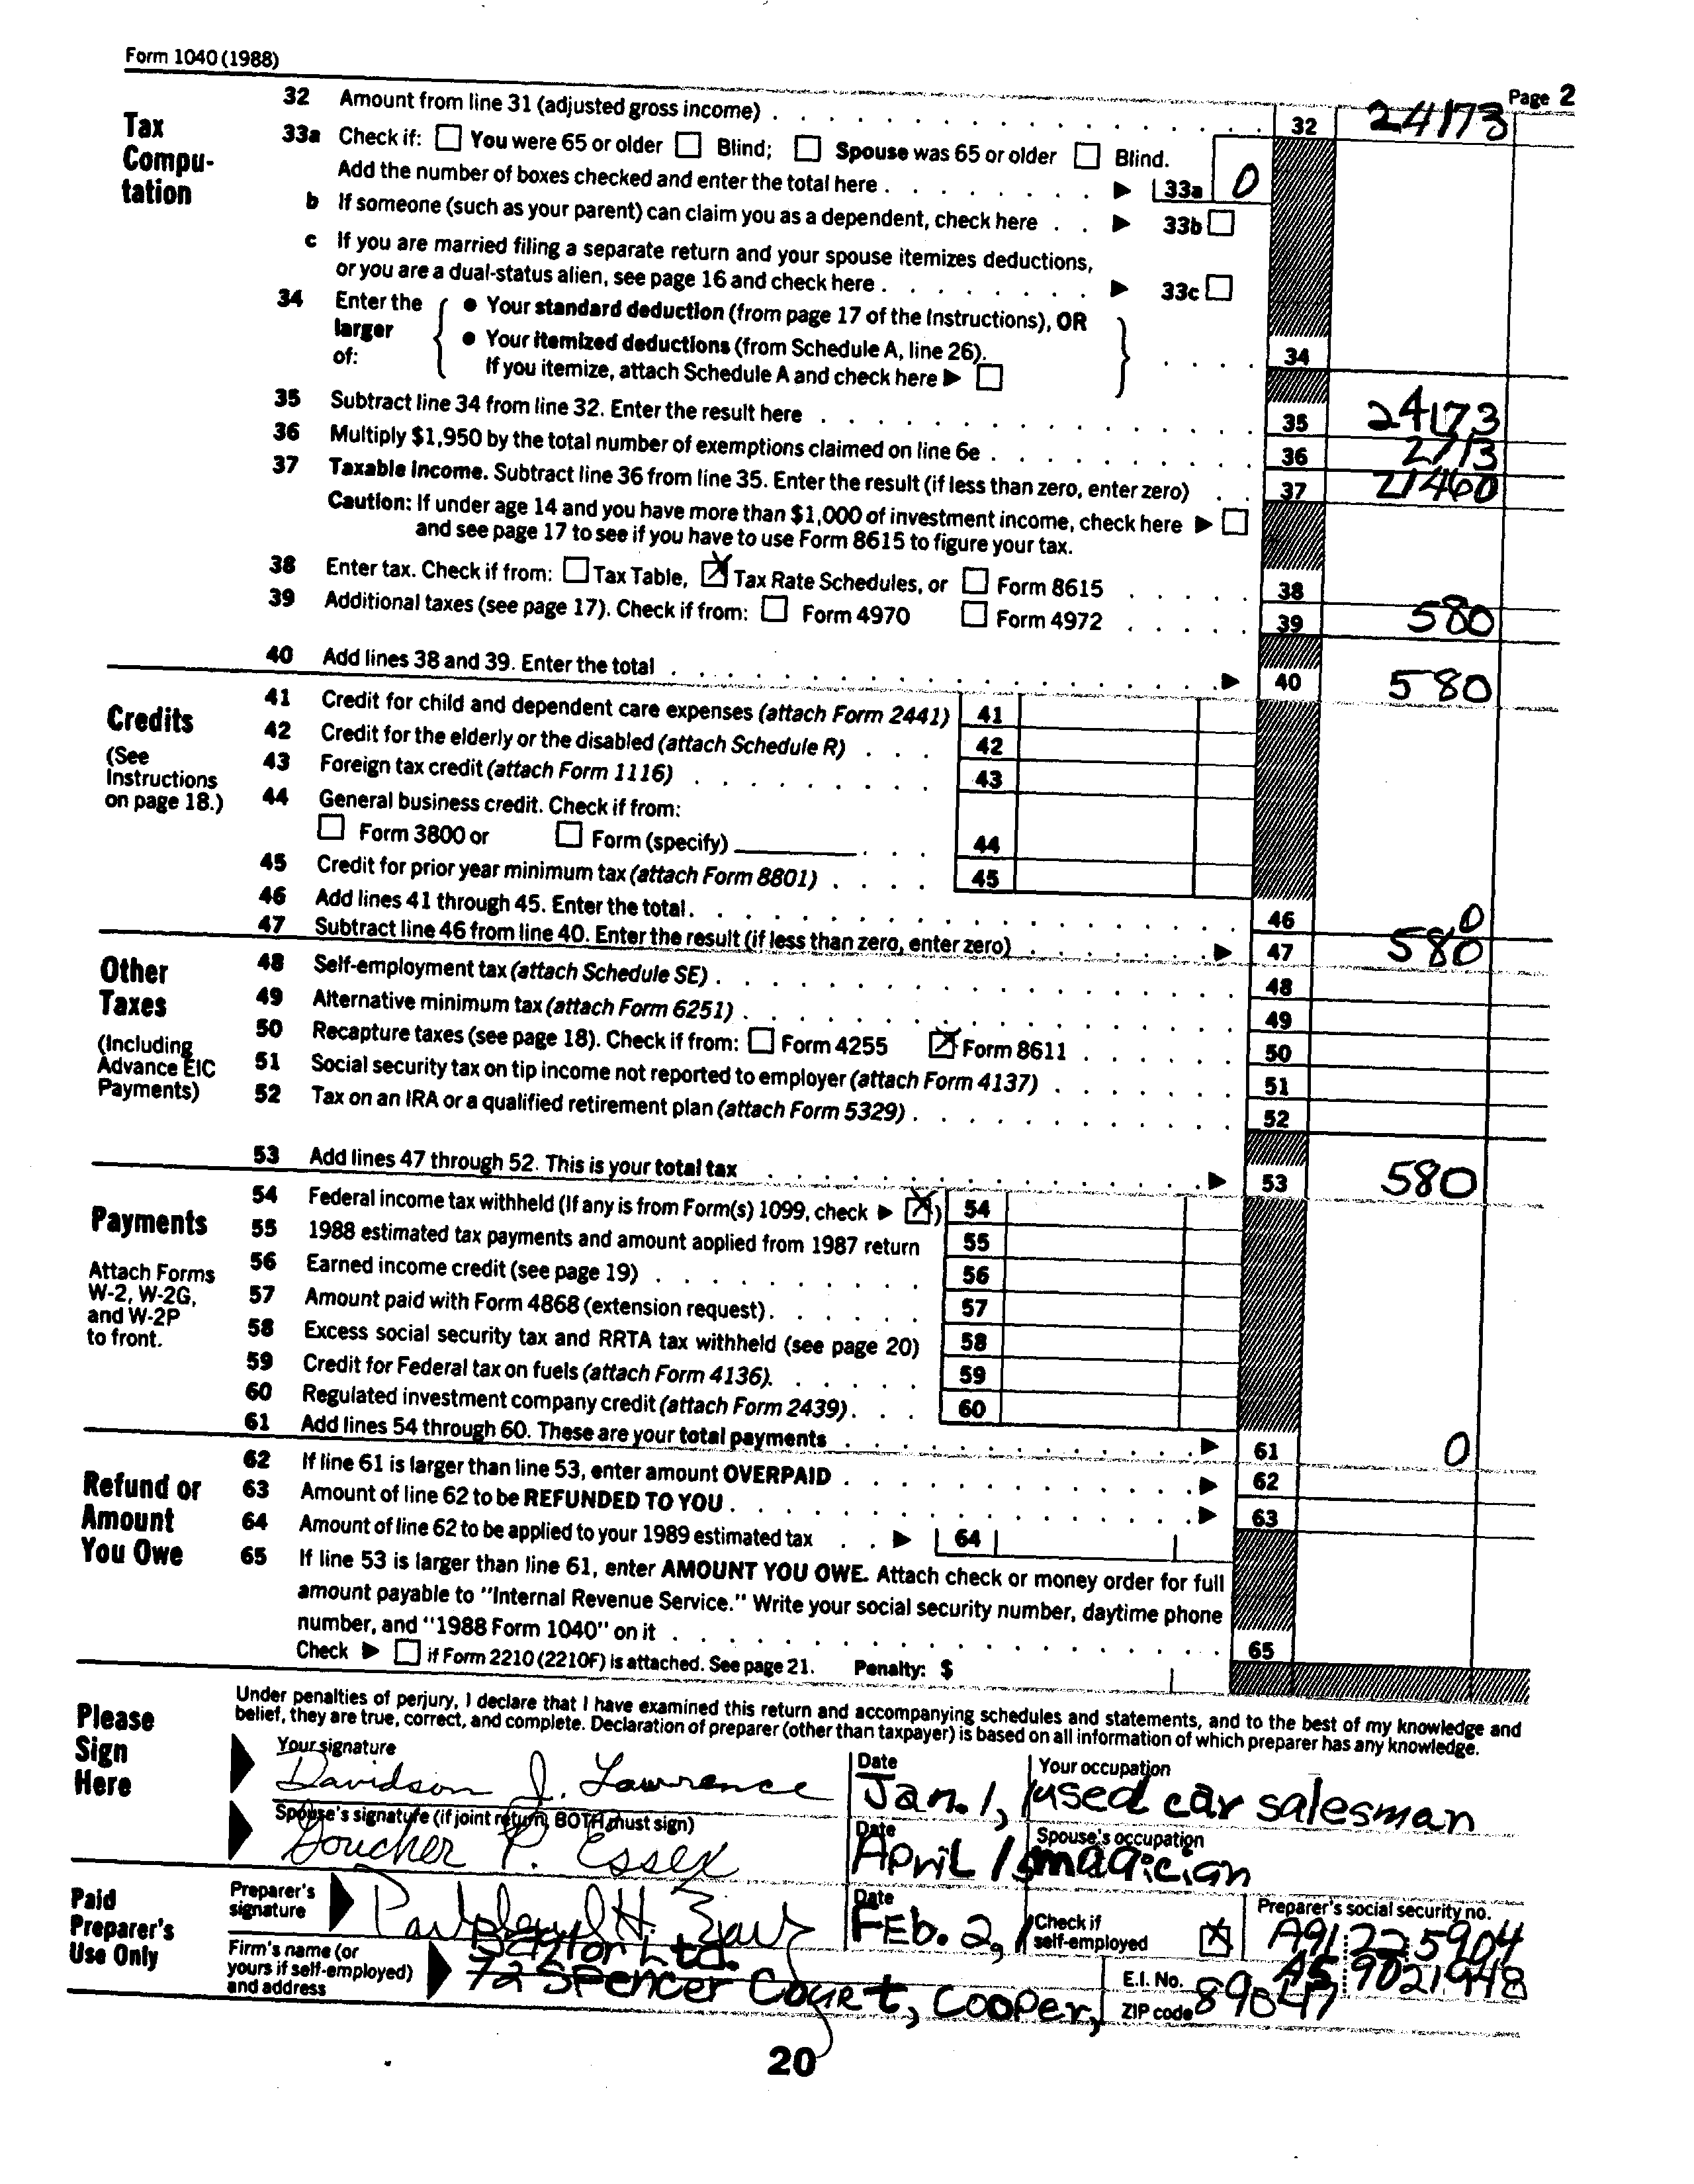 Form 1040 (1988)
Page 2
Tax Compu-tation
32 Amount from line 31 (adjusted gross income) 32 24173
33a Check if: You were 65 or older Blind; Spouse was 65 or older Blind.
Add the number of boxes checked and enter the total here 33a 0
b If someone (such as your parent) can claim you as a dependent, check here 33b
c If you are married filing a separate return and your spouse itemizes deductions,
or you are a dual-status alien, see page 16 and check here 33c
34 Enter the larger of:
• Your standard deduction (from page 17 of the Instructions), OR
• Your itemized deductions (from Schedule A, line 26).
If you itemize, attach Schedule A and check here 34
35 Subtract line 34 from line 32. Enter the result here 35 24173
36 Multiply $1,950 by the total number of exemptions claimed on line 6e 36 2713
37 Taxable income. Subtract line 36 from line 35. Enter the result (if less than zero, enter zero) 37 21460
Caution: If under age 14 and you have more than $1,000 of investment income, check here
and see page 17 to see if you have to use Form 8615 to figure your tax.
38 Enter tax. Check if from: Tax Table, X Tax Rate Schedules, or Form 8615 38
39 Additional taxes (see page 17). Check if from: Form 4970 Form 4972 39 580
40 Add lines 38 and 39. Enter the total 40 580
Credits
(See Instructions on page 18.)
41 Credit for child and dependent care expenses (attach Form 2441) 41
42 Credit for the elderly or the disabled (attach Schedule R) 42
43 Foreign tax credit (attach Form 1116) 43
44 General business credit. Check if from:
Form 3800 or Form (specify) 44
45 Credit for prior year minimum tax (attach Form 8801) 45
46 Add lines 41 through 45. Enter the total. 46 0
47 Subtract line 46 from line 40. Enter the result (if less than zero, enter zero) 47 580
Other Taxes
(Including Advance EIC Payments)
48 Self-employment tax (attach Schedule SE) 48
49 Alternative minimum tax (attach Form 6251) 49
50 Recapture taxes (see page 18). Check if from: Form 4255 X Form 8611 50
51 Social security tax on tip income not reported to employer (attach Form 4137) 51
52 Tax on an IRA or a qualified retirement plan (attach Form 5329) 52
53 Add lines 47 through 52. This is your total tax 53 580
Payments
Attach Forms W-2, W-2G, and W-2P to front.
54 Federal income tax withheld (If any is from Form(s) 1099, check X) 54
55 1988 estimated tax payments and amount applied from 1987 return 55
56 Earned income credit (see page 19) 56
57 Amount paid with Form 4868 (extension request) 57
58 Excess social security tax and RRTA tax withheld (see page 20) 58
59 Credit for Federal tax on fuels (attach Form 4136). 59
60 Regulated investment company credit (attach Form 2439) 60
61 Add lines 54 through 60. These are your total payments 61 0
Refund or Amount You Owe
62 If line 61 is larger than line 53, enter amount OVERPAID 62
63 Amount of line 62 to be REFUNDED TO YOU 63
64 Amount of line 62 to be applied to your 1989 estimated tax 64
65 If line 53 is larger than line 61, enter AMOUNT YOU OWE. Attach check or money order for full
amount payable to "Internal Revenue Service." Write your social security number, daytime phone
number, and "1988 Form 1040" on it 65
Check if Form 2210 (2210F) is attached. See page 21. Penalty: $
Please Sign Here
Under penalties of perjury, I declare that I have examined this return and accompanying schedules and statements, and to the best of my knowledge and
belief, they are true, correct, and complete. Declaration of preparer (other than taxpayer) is based on all information of which preparer has any knowledge.
Your signature Date Your occupation
Davidson J. Lawrence Jan. 1, used car salesman
Spouse's signature (if joint return, BOTH must sign) Date Spouse's occupation
Goucher P. Essex April 1, magician
Paid Preparer's Use Only
Preparer's signature Date Feb. 2, Check if self-employed X Preparer's social security no. A91 22 5904
Firm's name (or yours if self-employed) and address
Baylor Ltd. E.I. No. A5 9021948
72 Spencer Court, Cooper, ZIP code 89047
20